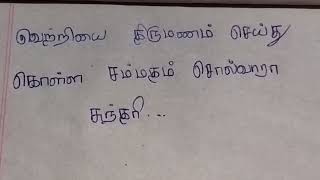 வெற்றியை திருமணம் செய்து
கொள்ள சம்மதம் சொல்வாரா
சுந்தரி...